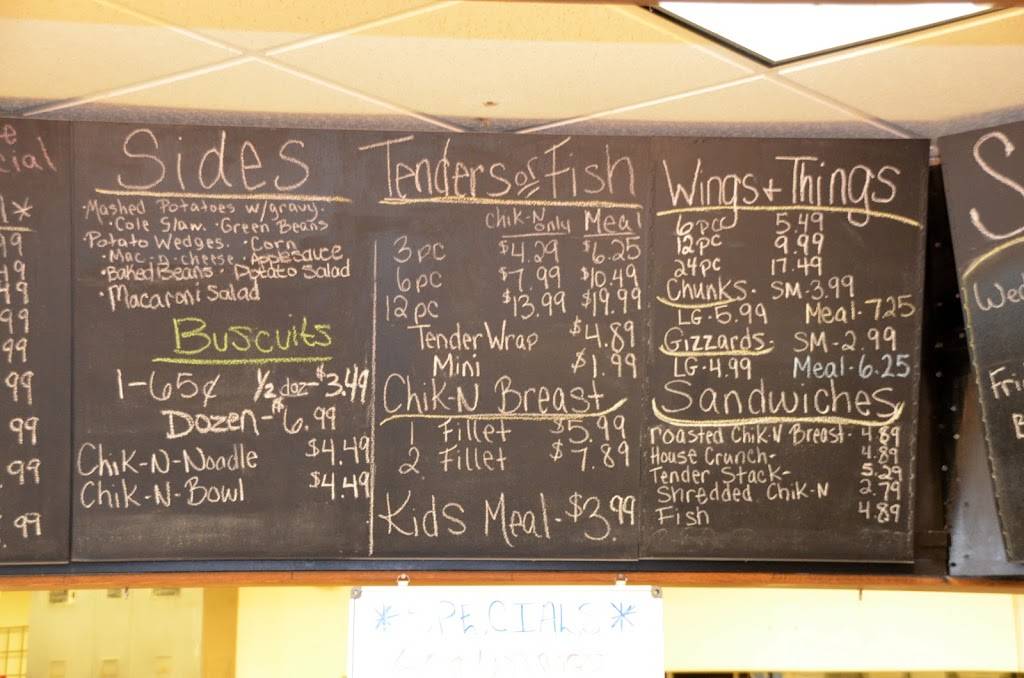 cial
Sides
·Mashed Potatoes w/gravy.
·Cole Slaw. ·Green Beans
·Potato Wedges. ·Corn
·Mac·n·cheese ·Applesauce
·Baked Beans · Potato Salad
·Macaroni Salad
Buscuits
1-65¢ 1/2 doz-$3.49
Dozen-$6.99
Chik-N-Noodle $4.49
Chik-N-Bowl $4.49
Tenders or Fish
Chik-N only Meal
3pc $4.29 $6.25
6pc $7.99 $10.49
12pc $13.99 $19.99
Tender Wrap $4.89
Mini $1.99
Chik-N Breast
1 Fillet $5.99
2 Fillet $7.89
Kids Meal-$3.99
Wings + Things
6pc 5.49
12pc 9.99
24pc 17.49
Chunks- SM-3.99
LG-5.99 Meal-7.25
Gizzards- SM-2.99
LG-4.99 Meal-6.25
Sandwiches
roasted Chik-N Breast- 4.89
House Crunch- 4.89
Tender Stack- 5.29
Shredded Chik-N 2.79
Fish 4.89
*SPECIALS*